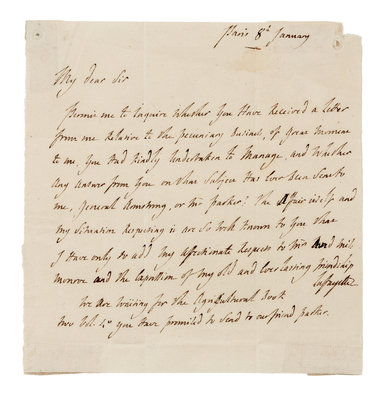 Paris 8th January
My dear Sir
Permit me to Inquire Whether You Have Received a Letter
from me Relative to the pecuniary Business, of Great Moment
to me, You Had Kindly Undertaken to Manage, and Whether
Any Answer from You on that Subject Has Ever Been Sent to
me, General Armstrong, or Mr parker? The Affair itself and
my Situation Respecting it are So Well Known to You that
I Have only to add my affectionate Respects to Mrs and
Monroe and the expression of my old and everlasting friendship
Lafayette
We Are Waiting for the Agricultural Book
two Vol. 4o you Have promised to Send to our friend parker.